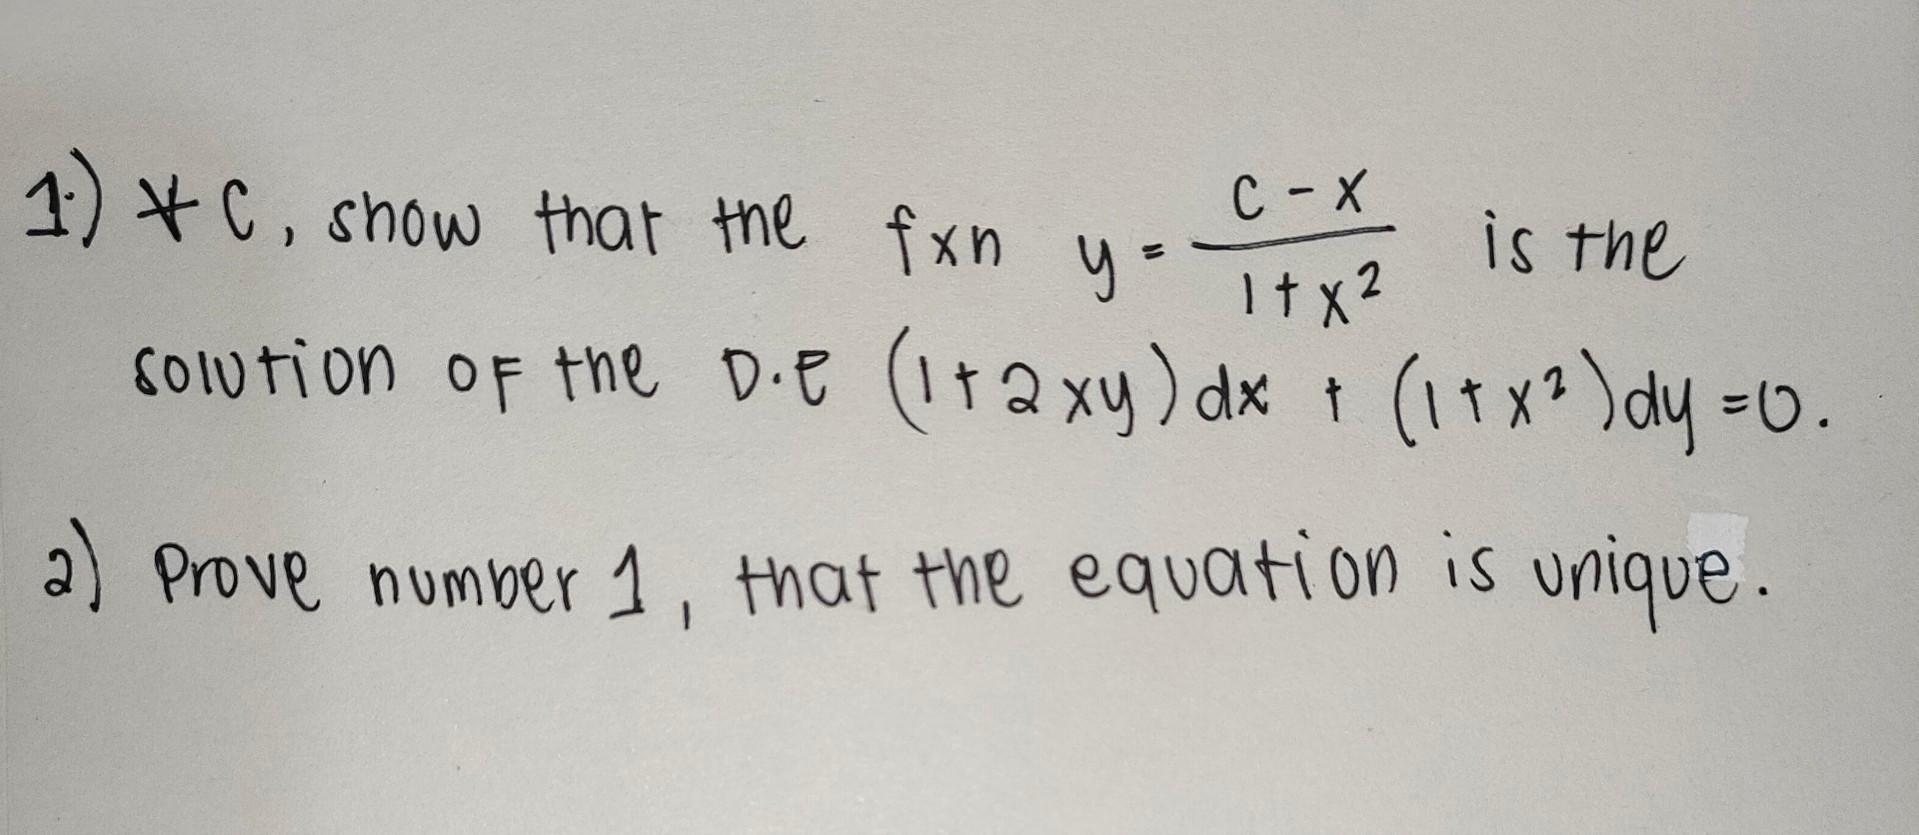 1.) ∀ C, show that the fxn y = (C - x)/(1 + x²) is the
solution OF the D.E (1 + 2xy)dx + (1 + x²)dy = 0.
2) Prove number 1, that the equation is unique.